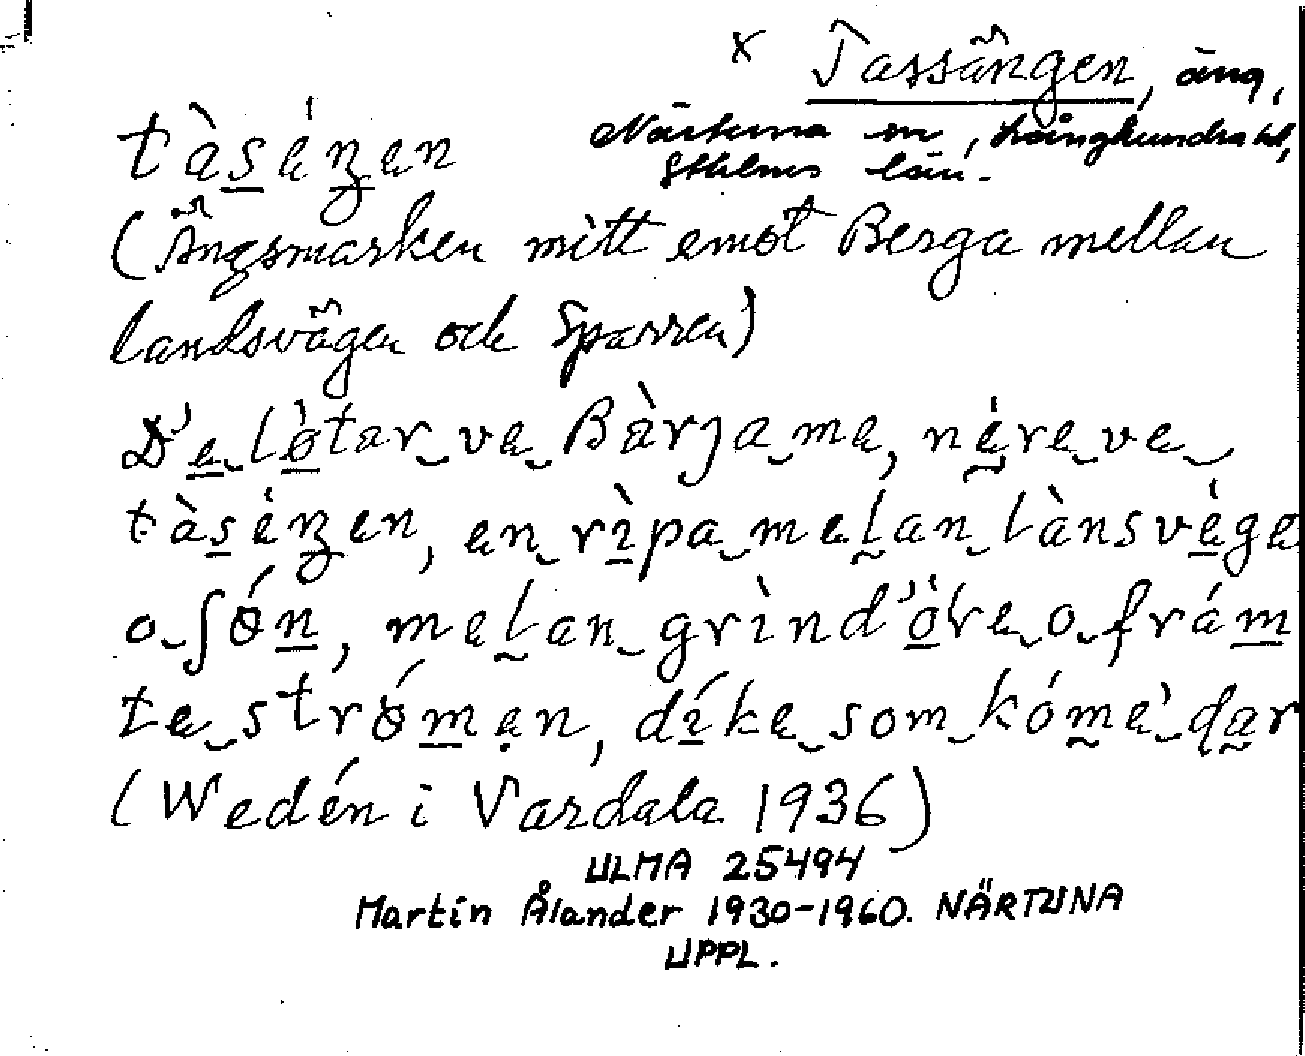 x Tassängen, äng,
Närtuna sn, Långhundra hd,
Sthlms län.
tàsèŋen
(Ängsmarken mitt emot Berga mellan
landsvägen och Sparren)
De lòtar ve Bàrjame, nére ve
tàsèŋen, en rìpa melan lànsvège
o ʃǿn, melan grìndòLe o frám
te strǿmen, díke som kóme dar
(Wedén i Vardala 1936)
ULMA 25494
Martin Ålander 1930-1960. NÄRTUNA
UPPL.